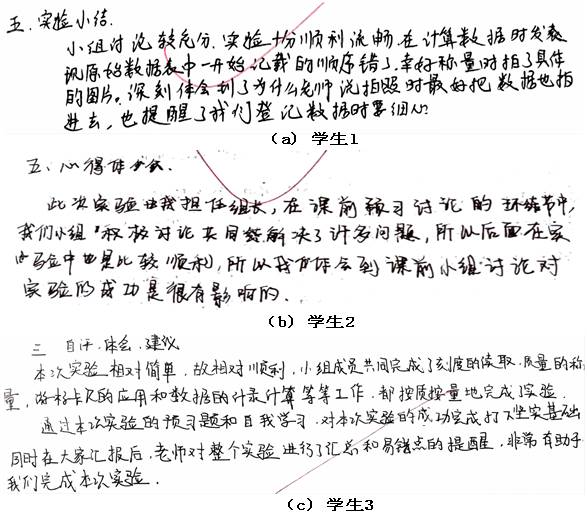 五.实验小结.
小组讨论较充分.实验十分顺利流畅.在计算数据时发表
现原始数据表中一开始记载的顺序错了.幸好称量时拍了具体
的图片。深刻体会到了为什么老师说拍照时最好把数据也拍
进去,也提醒了我们登记数据时要细心
(a) 学生1
五、心得体会.
此次实验由我担任组长,在课前预习讨论的环节中,
我们小组积极讨论共同解决了许多问题,所以后面在实
验中也是比较顺利,所以我们体会到课前小组讨论对
实验的成功是很有影响的.
(b) 学生2
三 自评.体会.建议
本次实验相对简单.故相对顺利.小组成员共同完成了刻度的读取.质量的称
量,游标卡尺的应用和数据的计录计算等等工作.都按质按量地完成了实验.
通过本次实验的预习题和自我学习.对本次实验的成功完成打下坚实基础
同时在大家汇报后.老师对整个实验进行了汇总和易错点的提醒,非常有助于
我们完成本次实验.
(c) 学生3